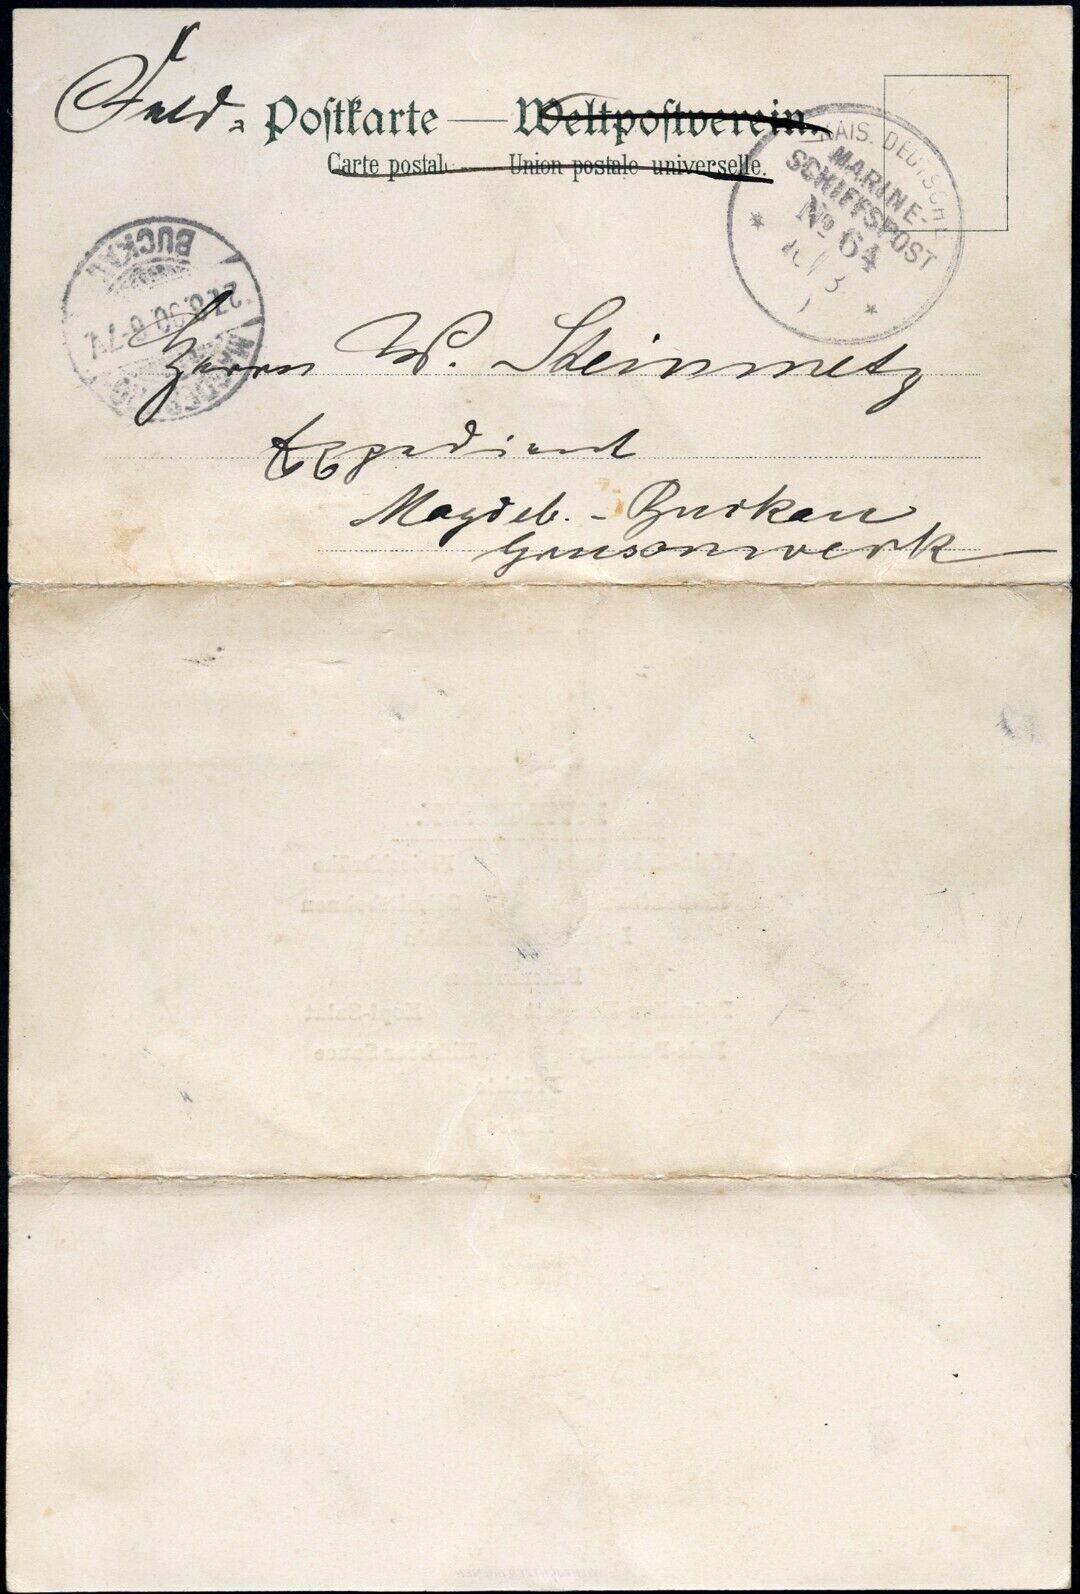 Feld-Postkarte — Weltpostverein.
Carte postale — Union postale universelle.
KAIS. DEUTSCHE
MARINE-
SCHIFFSPOST
No 64
BUCKAU
MAGDEBURG
Herrn W. Steinmetz
Expedient
Magdeb. - Buckau
Grusonwerk